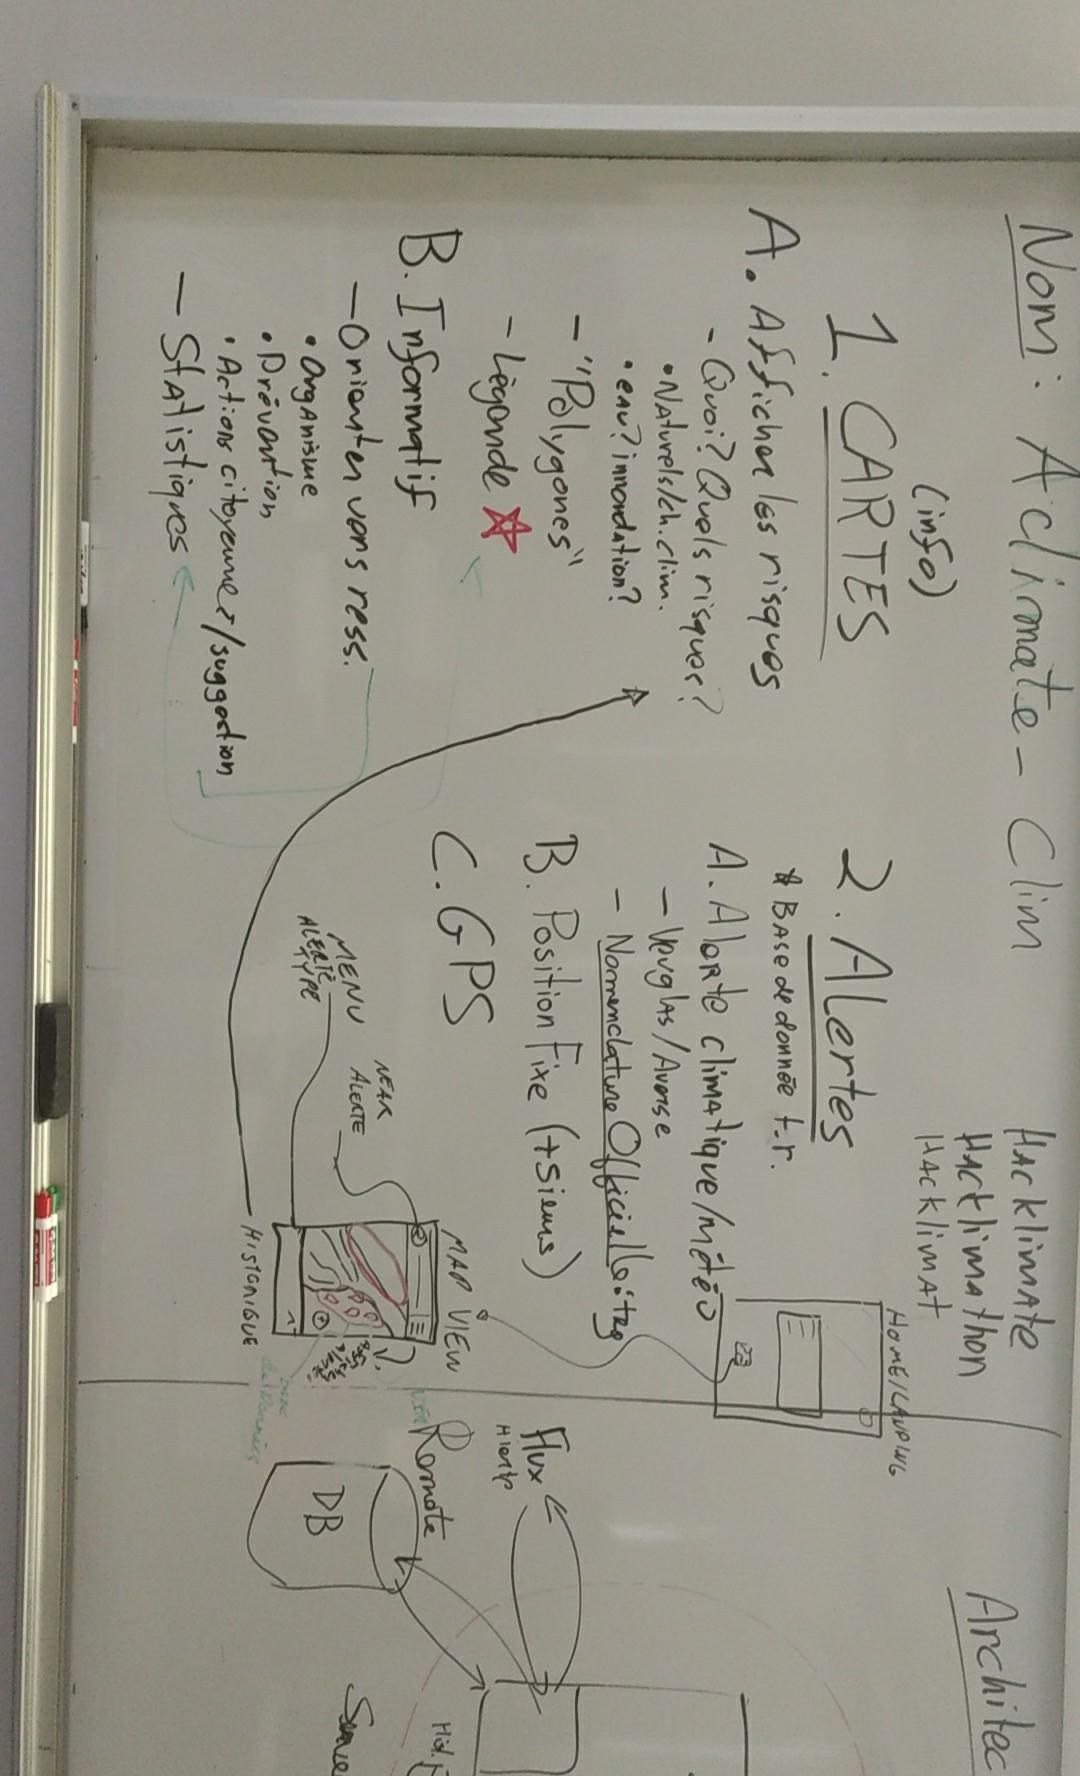 Nom: Aclimate-Clim
Hacklimate
Hacklimathon
Hacklimat
(info)
1. CARTES
A. Afficher les risques
- Quoi? Quels risques?
• Naturels/ch. clim.
• eau? innondation?
- "Polygones"
- Légende
B. Informatif
- Orienter vers ress.
• Organisme
• Prévention
• Actions citoyennes/suggestion
- Statistiques
2. Alertes
* Base de donnée t.r.
A. Alerte climatique/météo
- Verglas/Averse
- Nomenclature Officielle
B. Position Fixe (+sieurs)
C. GPS
MENU
ALERTE
TYPE
NEAR
ALERTE
HOME/LANDING
MAP VIEW
HISTORIQUE
Architec
Flux
Alerte
Remote
DB